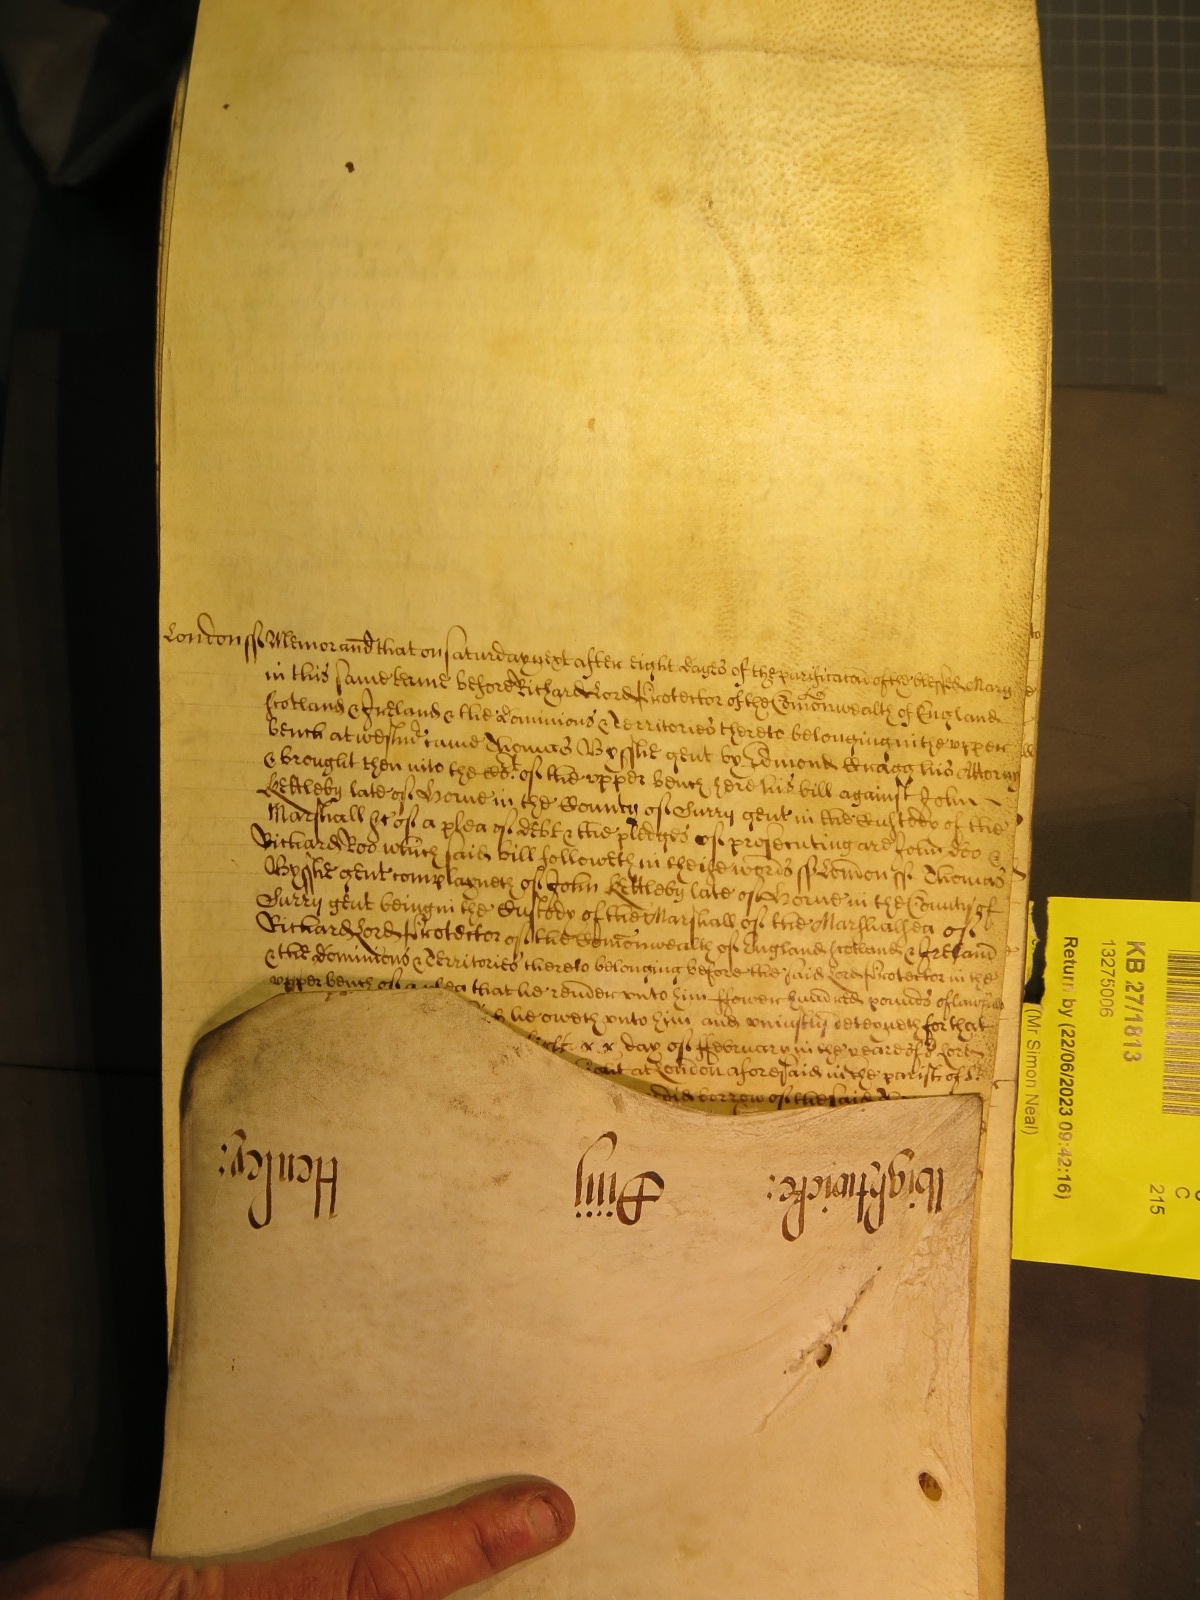 London ss Memorand that on Saturday next after eight dayes of the purificacon of the blessed Mary
in this same terme before Richard Lord Protector of the Comonwealth of England
Scotland & Ireland & the dominions & Territories thereto belonging in the upper
bench at Westmr came Thomas Bysshe gent by Edmond Knagg his Attorny
& brought then into the of the upper bench here his bill against John
Kettleby late of Horne in the County of Surry gent in the Custody of the
Marshall &c of a plea of debt & the pledges of prosecuting are John doo &
Richard Roo which said bill followeth in theise words ss London ss Thomas
Bysshe gent complayneth of John Kettleby late of Horne in the County of
Surry gent being in the Custody of the Marshall of the Marshalsea of
Richard Lord Protector of the Comonwealth of England Scotland & Ireland
& the dominions & Territories thereto belonging before the said Lord Protector in the
upper bench of a plea that he render unto him ffower hundred pounds of lawfull
he oweth unto him and uniustly deteyneth for that
xx day of ffebruary in the yeare of or Lord
at London aforesaid in the parish of St
did borrow of the said
Wightwicke:
Henley:
KB 27/1813
13275006
Return by (22/06/2023 09:42:16)
(Mr Simon Neal)
C
215